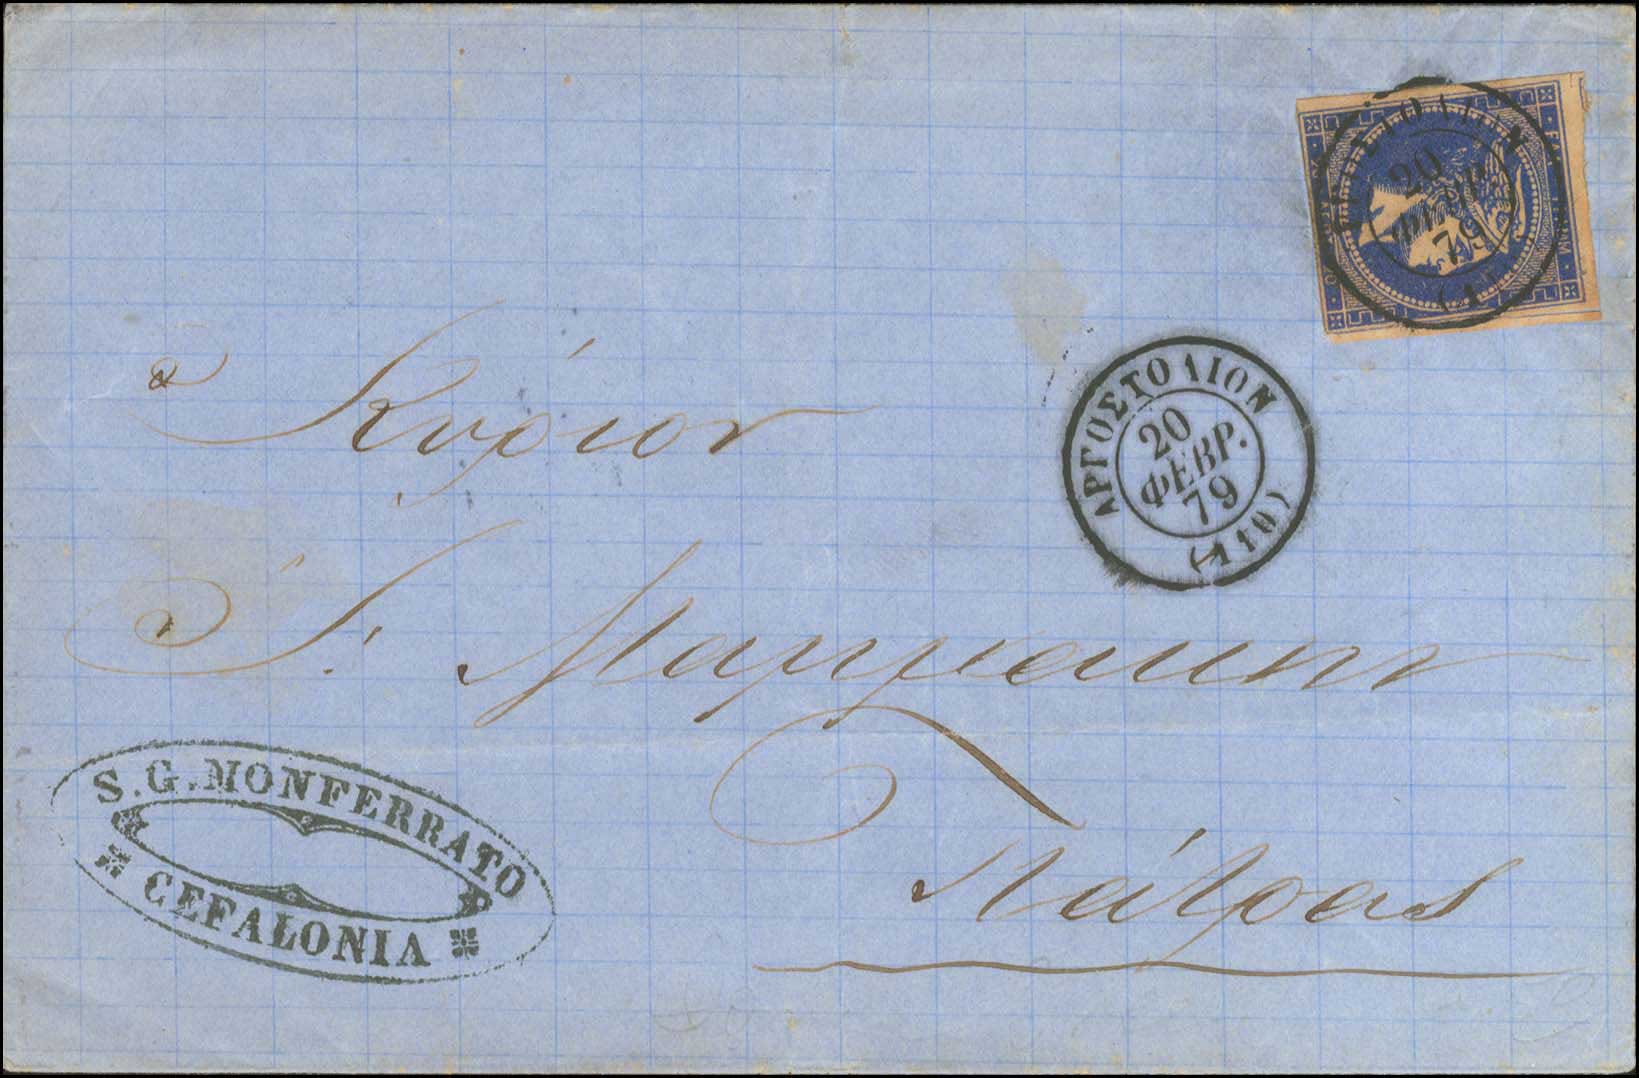 20
79
ΑΡΓΟΣΤΟΛΙΟΝ
20
ΦΕΒΡ.
79
(110)
Κύριον
Πάτρας
S. G. MONFERRATO
CEFALONIA